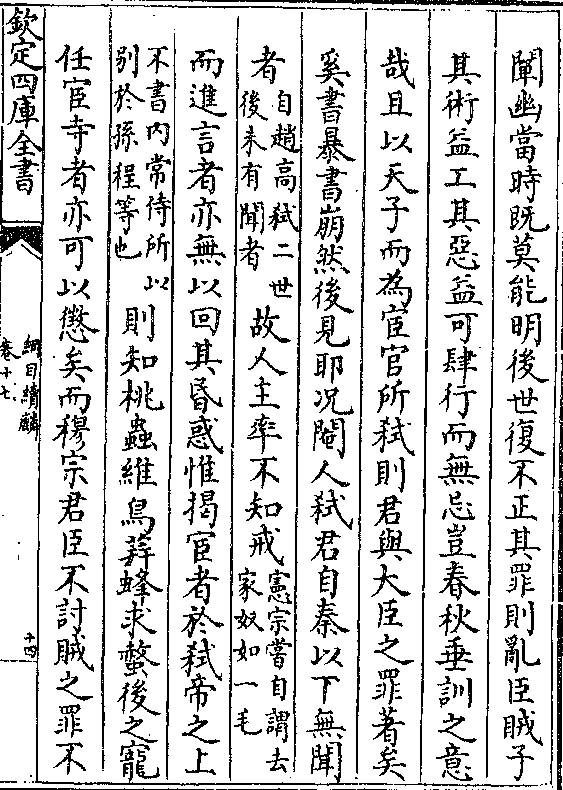 闡幽當時既莫能明後世復不正其罪則亂臣賊子
其術益工其惡益可肆行而無忌豈春秋垂訓之意
哉且以天子而為宦官所弑則君與大臣之罪著矣
奚書暴書崩然後見耶况閹人弑君自秦以下無聞
者自趙高弑二世後未有聞者故人主率不知戒憲宗嘗自謂去家奴如一毛
而進言者亦無以回其昏惑惟揭宦者於弑帝之上
不書内常侍所以别於孫程等也則知桃蟲維鳥荓蜂求螫後之寵
任宦寺者亦可以懲矣而穆宗君臣不討賊之罪不
欽定四庫全書
綱目續麟
卷十七
十四